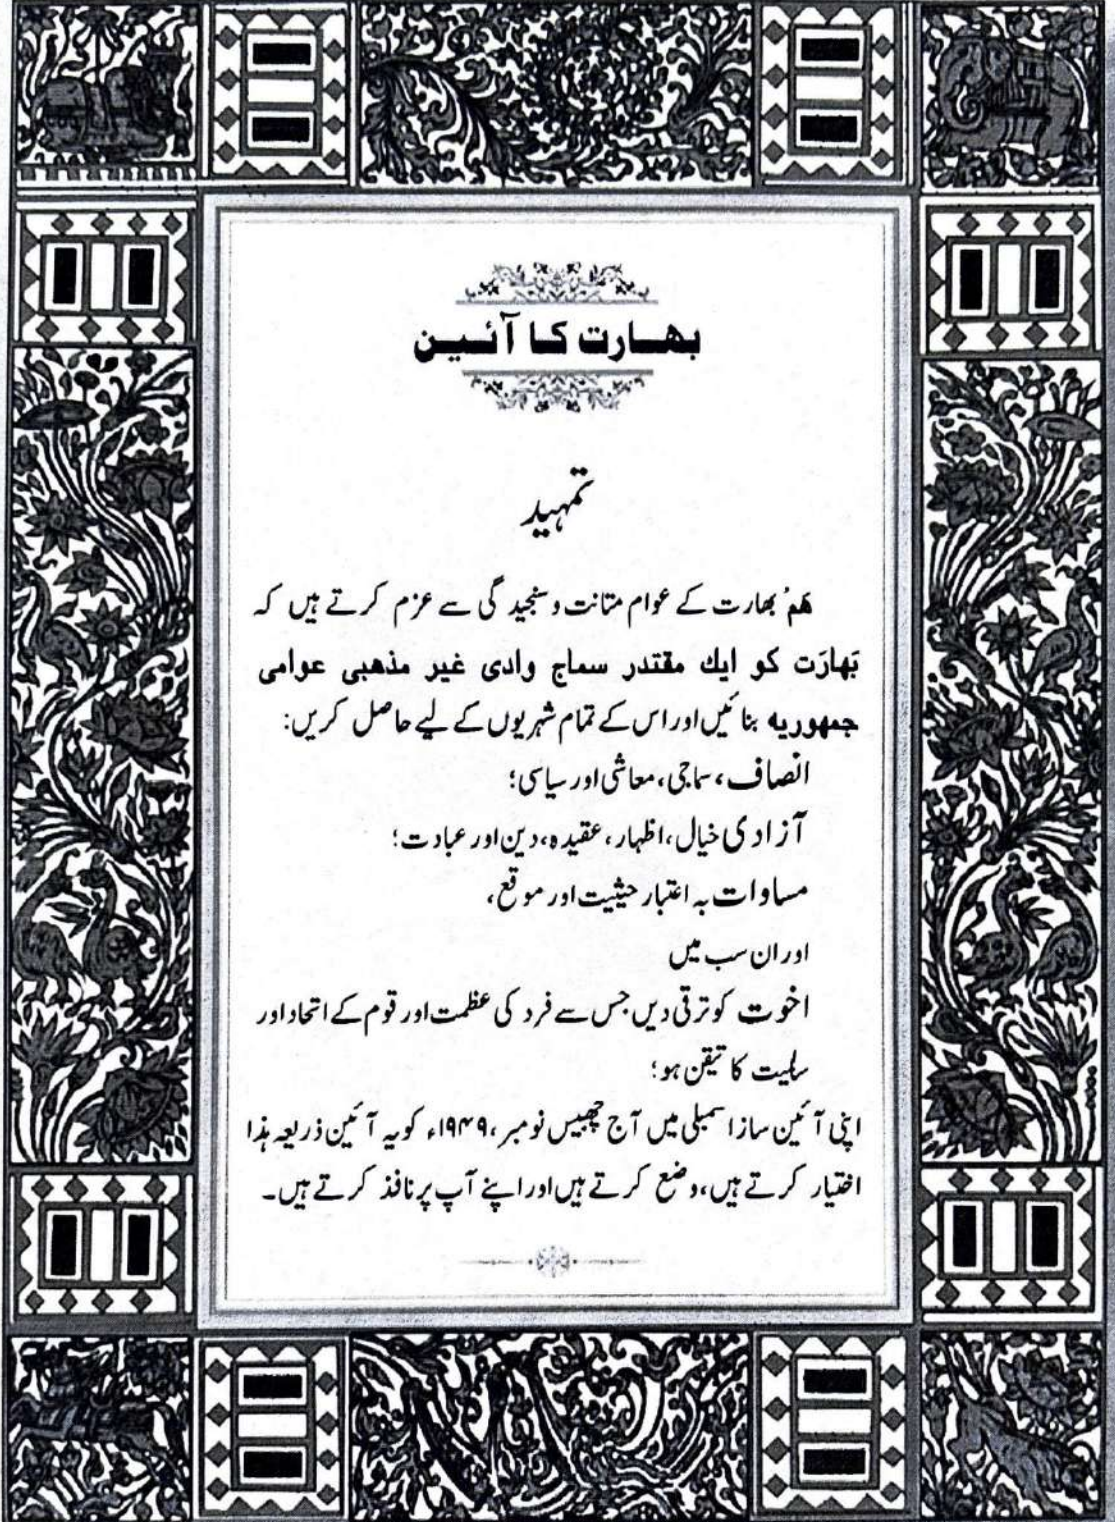 بھارت کا آئین
تمہید
ہَم بھارت کے عوام متانت و سنجیدگی سے عزم کرتے ہیں کہ
بَھارَت کو ایك مقتدر سماج وادی غیر مذھبی عوامی
جمھوریہ بنائیں اور اس کے تمام شہریوں کے لیے حاصل کریں:
انصاف، سماجی، معاشی اور سیاسی؛
آزادی خیال، اظہار، عقیدہ، دین اور عبادت؛
مساوات بہ اعتبار حیثیت اور موقع،
اور ان سب میں
اخوت کو ترقی دیں جس سے فرد کی عظمت اور قوم کے اتحاد اور
سالمیت کا تیقن ہو؛
اپنی آئین ساز اسمبلی میں آج چھبیس نومبر، ۱۹۴۹ء کو یہ آئین ذریعہ ہٰذا
اختیار کرتے ہیں، وضع کرتے ہیں اور اپنے آپ پر نافذ کرتے ہیں۔